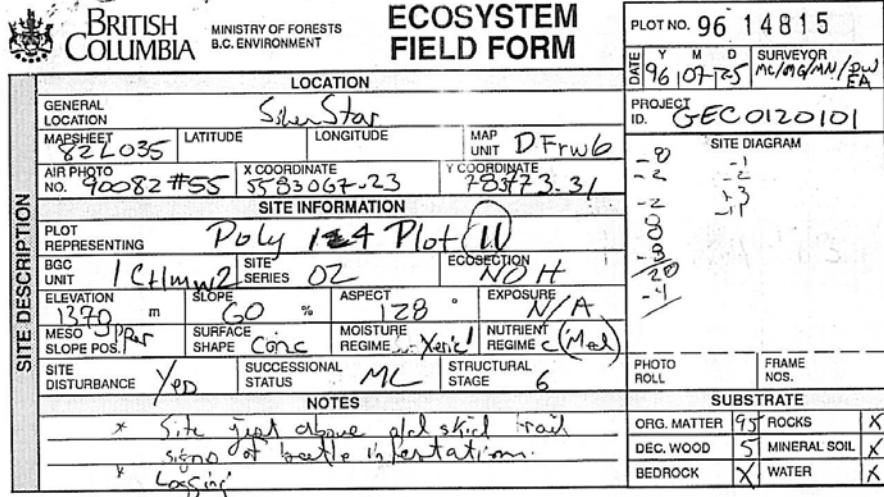 BRITISH COLUMBIA
MINISTRY OF FORESTS
B.C. ENVIRONMENT
ECOSYSTEM FIELD FORM
PLOT NO. 96 14815
DATE Y M D 96 07 25
SURVEYOR MC/MG/MN/DW EA
PROJECT ID. GEC0120101
SITE DESCRIPTION
LOCATION
GENERAL LOCATION Silver Star
MAPSHEET 82L035 LATITUDE LONGITUDE MAP UNIT DFrw6
AIR PHOTO NO. 90082 #55 X COORDINATE 5583067-23 Y COORDINATE 783773.31
SITE INFORMATION
PLOT REPRESENTING Poly 124 Plot
BGC UNIT ICHmw2 SITE SERIES 02 ECOSECTION NOH
ELEVATION 1370 m SLOPE 60 % ASPECT 128 ° EXPOSURE N/A
MESO SLOPE POS. upper SURFACE SHAPE Conc MOISTURE REGIME Xeric 1 NUTRIENT REGIME C (Med)
SITE DISTURBANCE Yes SUCCESSIONAL STATUS MC STRUCTURAL STAGE 6
NOTES
* Site just above old skid trail
signs of beetle infestation.
* Logging
SITE DIAGRAM
-2 -2
-2
20
-4
PHOTO ROLL FRAME NOS.
SUBSTRATE
ORG. MATTER 95 ROCKS X
DEC. WOOD 5 MINERAL SOIL X
BEDROCK X WATER X